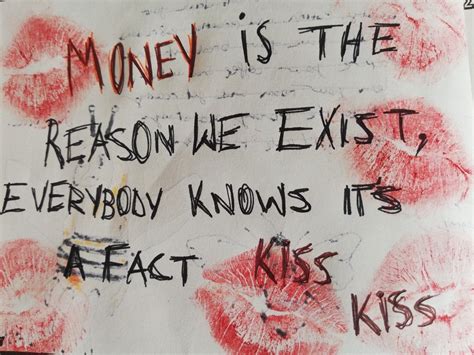 MONEY IS THE
REASON WE EXIST,
EVERYBODY KNOWS IT'S
A FACT KISS
KISS